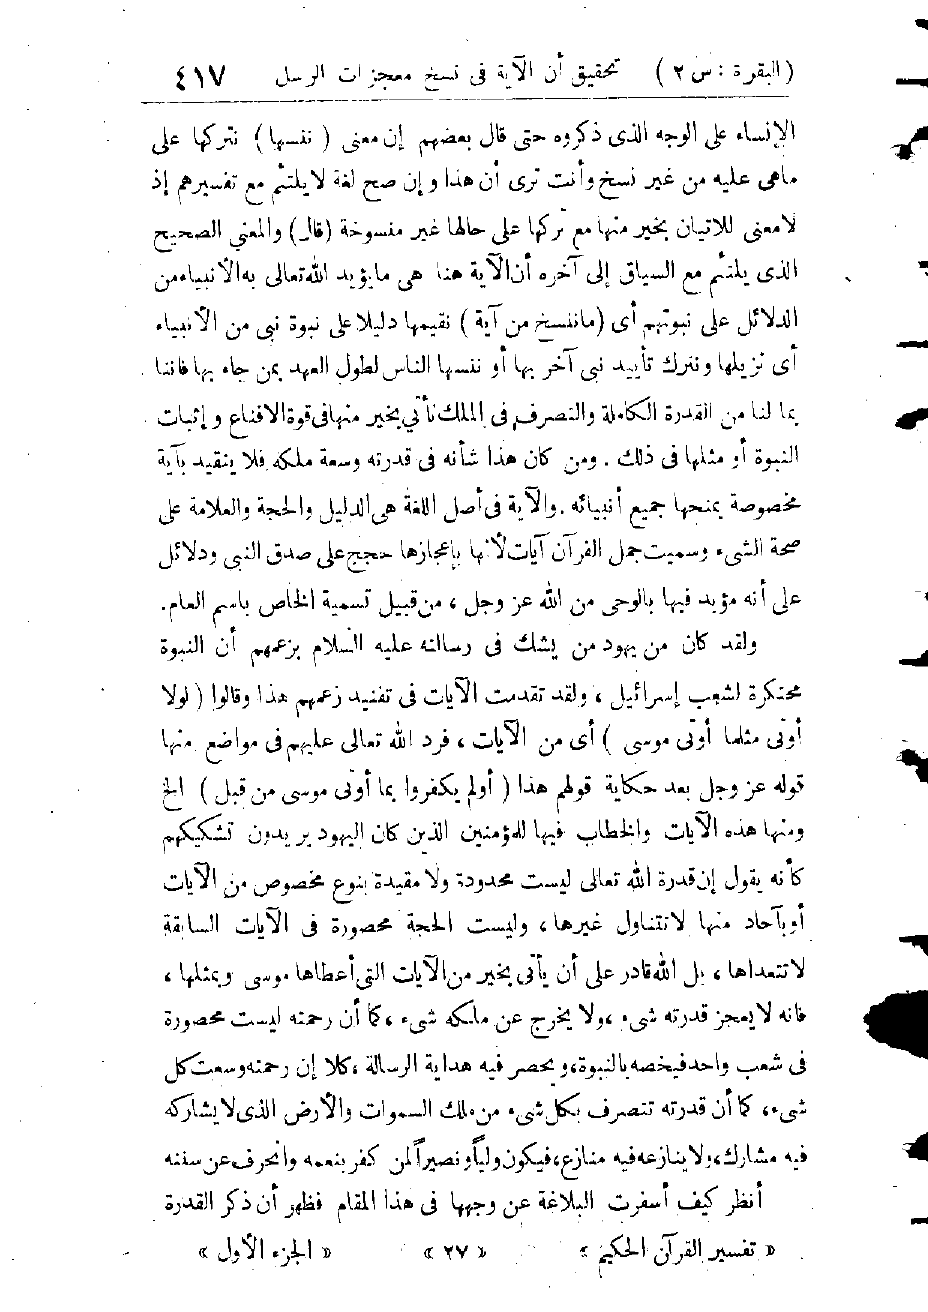 (البقرة : س ٢) تحقيق أن الآية فى نسخ معجزات الرسل ٤١٧
الإنساء على الوجه الذى ذكروه حتى قال بعضهم إن معنى ( ننسها ) نتركها على
ماهى عليه من غير نسخ وأنت ترى أن هذا وإن صح لغة لا يلتئم مع تفسيرهم إذ
لا معنى للاتيان بخير منها مع تركها على حالها غير منسوخة (قال) والمعنى الصحيح
الذى يلتئم مع السياق إلى آخره أن الآية هنا هى ما يؤيد الله تعالى به الأنبياء من
الدلائل على نبوتهم أى (ماننسخ من آية ) نقيمها دليلا على نبوة نبى من الأنبياء
أى نزيلها ونترك تأييد نبى آخر بها أو ننسها الناس لطول العهد بمن جاء بها فاننا
بما لنا من القدرة الكاملة والتصرف فى الملك نأتى بخير منها فى قوة الاقناع وإثبات
النبوة أو مثلها فى ذلك . ومن كان هذا شأنه فى قدرته وسعة ملكه فلا يتقيد بآية
مخصوصة يمنحها جميع أنبيائه . والآية فى أصل اللغة هى الدليل والحجة والعلامة على
صحة الشىء وسميت جمل القرآن آيات لأنها بإعجازها حجج على صدق النبى ودلائل
على أنه مؤيد فيها بالوحى من الله عز وجل ، من قبيل تسمية الخاص باسم العام.
ولقد كان من يهود من يشك فى رسالته عليه السلام بزعمهم أن النبوة
محتكرة لشعب إسرائيل ، ولقد تقدمت الآيات فى تفنيد زعمهم هذا وقالوا ( لولا
أوتى مثلما أوتى موسى ) أى من الآيات ، فرد الله تعالى عليهم فى مواضع منها
قوله عز وجل بعد حكاية قولهم هذا ( أولم يكفروا بما أوتى موسى من قبل ) الخ
ومنها هذه الآيات والخطاب فيها للمؤمنين الذين كان اليهود يريدون تشكيكهم
كأنه يقول إن قدرة الله تعالى ليست محدودة ولا مقيدة بنوع مخصوص من الآيات
أو بآحاد منها لا تتناول غيرها ، وليست الحجة محصورة فى الآيات السابقة
لا تتعداها ، بل الله قادر على أن يأتى بخير من الآيات التى أعطاها موسى وبمثلها ،
فانه لا يعجز قدرته شىء ، ولا يخرج عن ملكه شىء ، كما أن رحمته ليست محصورة
فى شعب واحد فيخصه بالنبوة، ويحصر فيه هداية الرسالة ، كلا إن رحمته وسعت كل
شىء، كما أن قدرته تتصرف بكل شىء من ملك السموات والأرض الذى لا يشاركه
فيه مشارك، ولا ينازعه فيه منازع، فيكون ولياً ونصيراً لمن كفر بنعمه وانحرف عن سننه
أنظر كيف أسفرت البلاغة عن وجهها فى هذا المقام فظهر أن ذكر القدرة
« تفسير القرآن الحكيم » « ٢٧ » « الجزء الأول »